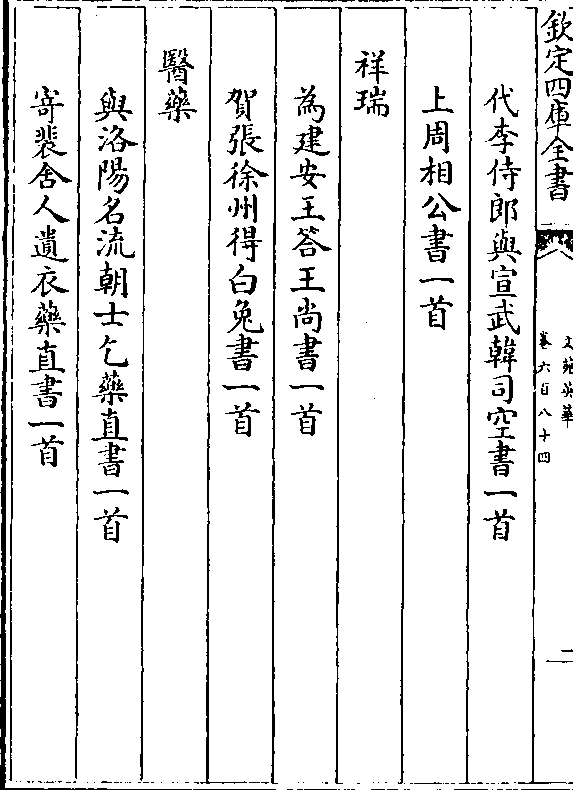 欽定四庫全書
文苑英華
卷六百八十四
二
代李侍郎與宣武韓司空書一首
上周相公書一首
祥瑞
為建安王答王尚書一首
賀張徐州得白兎書一首
醫藥
與洛陽名流朝士乞藥直書一首
寄裴舍人遺衣藥直書一首